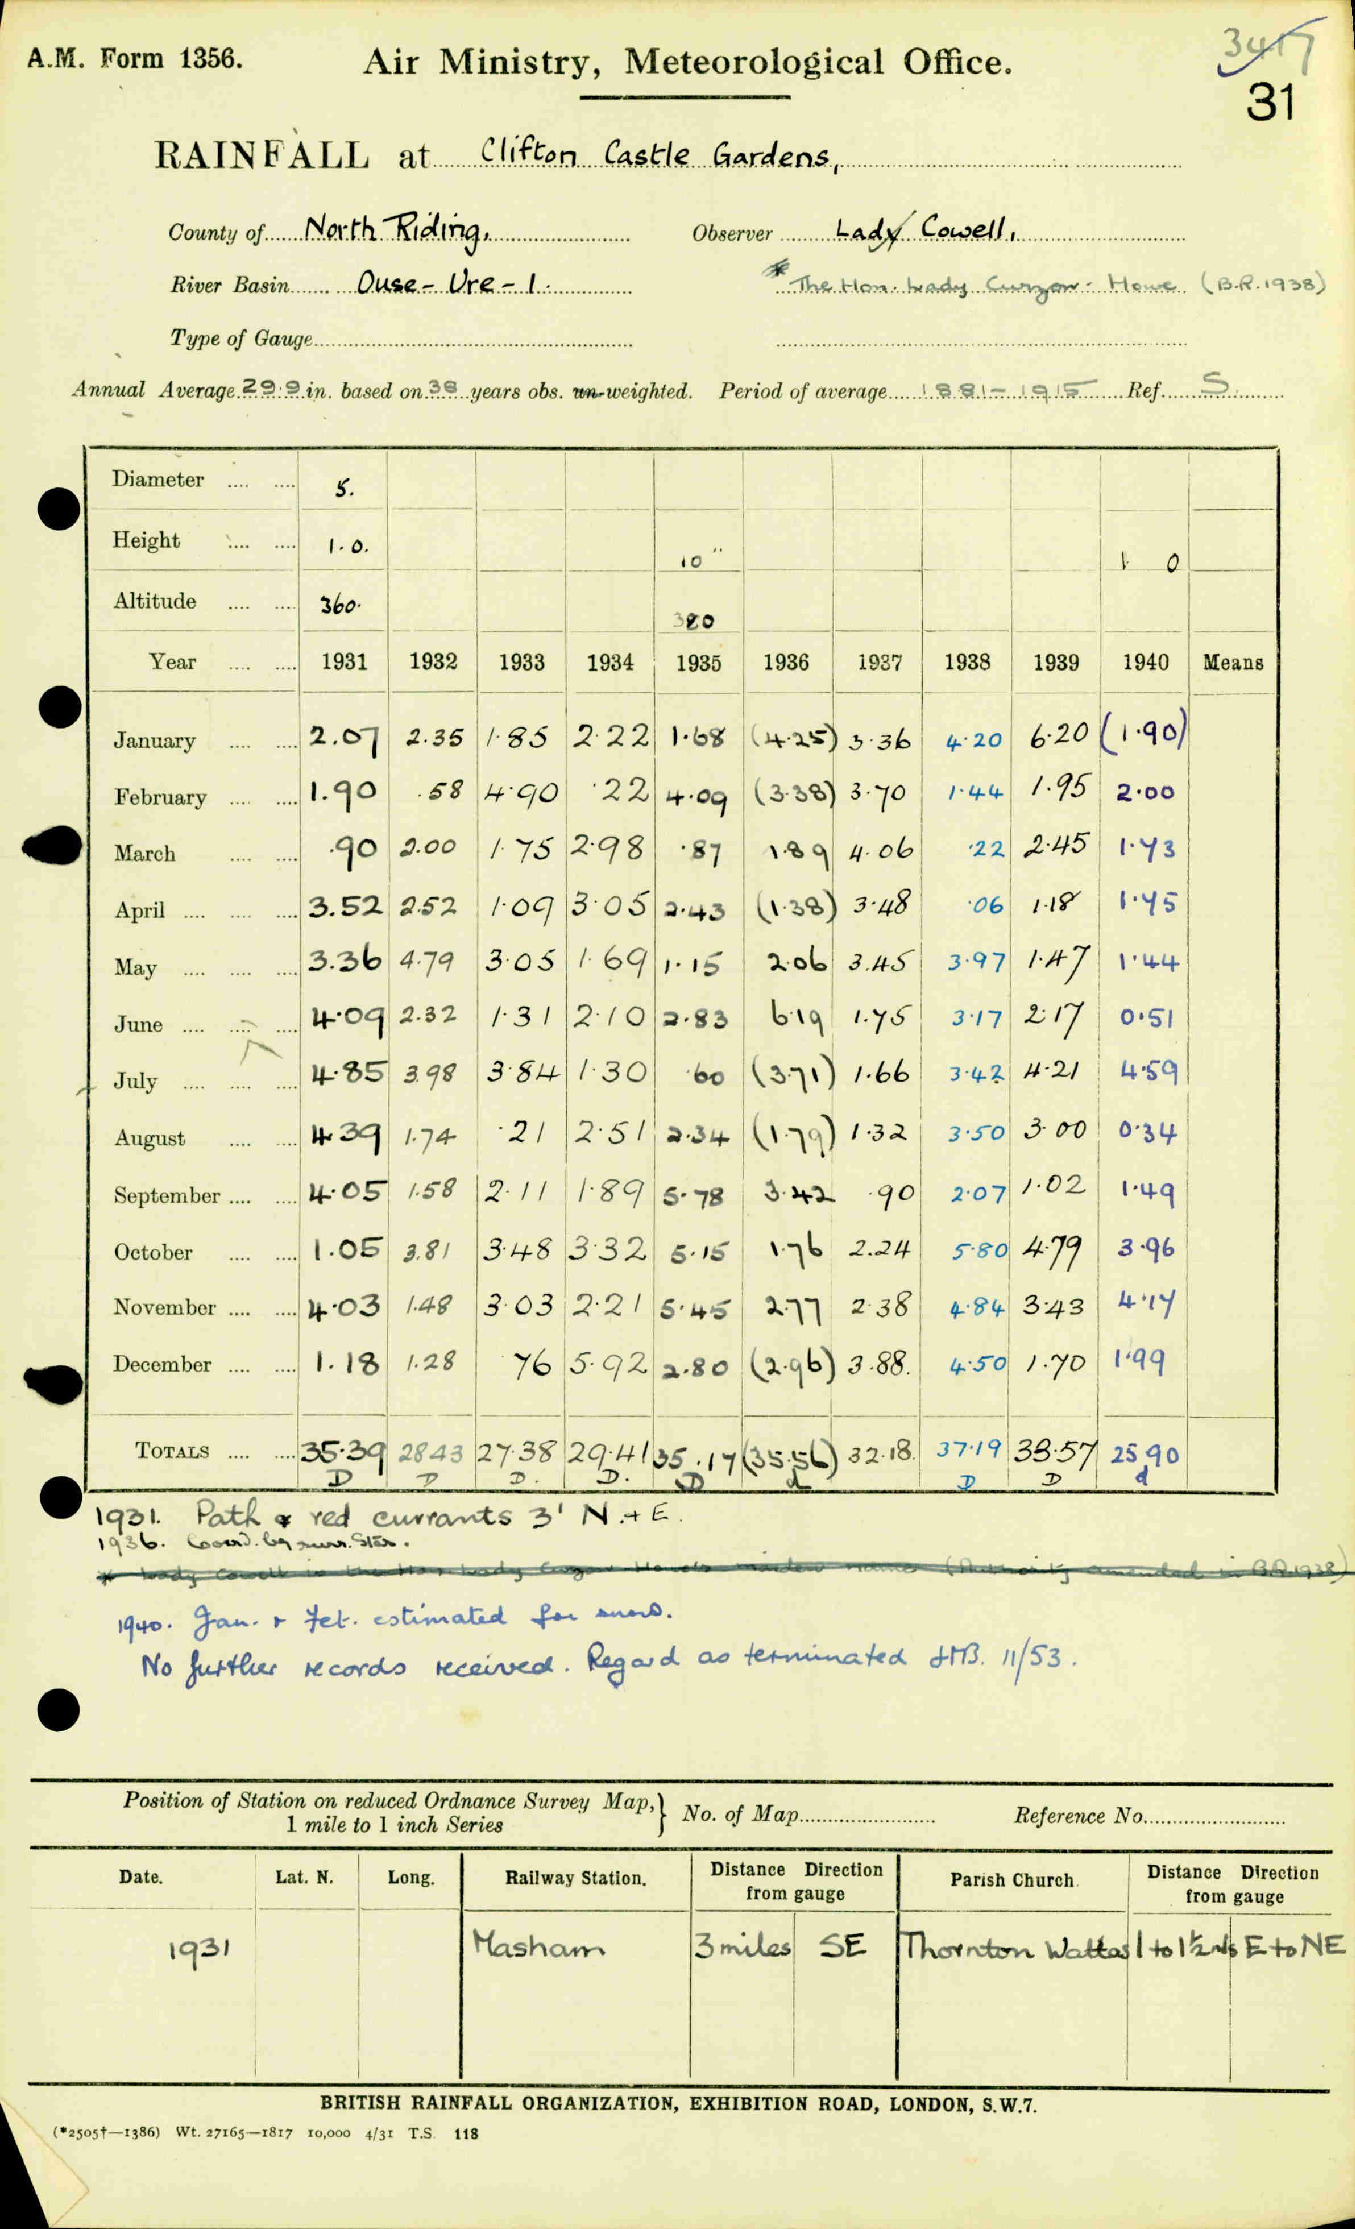 3417
A.M. Form 1356. Air Ministry, Meteorological Office.
31
RAINFALL at Clifton Castle Gardens,
County of North Riding, Observer Lady Cowell,
River Basin Ouse - Ure - 1. * The Hon. Lady Curzon - Howe (B.R. 1938)
Type of Gauge
Annual Average 29.9 in. based on 38 years obs. un-weighted. Period of average 1881-1915 Ref. S.
Diameter 5.
Height 1.0. 10" 1 0
Altitude 360. 380
Year 1931 1932 1933 1934 1935 1936 1937 1938 1939 1940 Means
January 2.07 2.35 1.85 2.22 1.68 (4.25) 3.36 4.20 6.20 (1.90)
February 1.90 .58 4.90 .22 4.09 (3.38) 3.70 1.44 1.95 2.00
March .90 2.00 1.75 2.98 .87 1.89 4.06 .22 2.45 1.73
April 3.52 2.52 1.09 3.05 2.43 (1.38) 3.48 .06 1.18 1.75
May 3.36 4.79 3.05 1.69 1.15 2.06 3.45 3.97 1.47 1.44
June 4.09 2.32 1.31 2.10 2.83 6.19 1.75 3.17 2.17 0.51
July 4.85 3.98 3.84 1.30 .60 (3.71) 1.66 3.42 4.21 4.59
August 4.39 1.74 .21 2.51 2.34 (1.79) 1.32 3.50 3.00 0.34
September 4.05 1.58 2.11 1.89 5.78 3.42 .90 2.07 1.02 1.49
October 1.05 3.81 3.48 3.32 5.15 1.76 2.24 5.80 4.79 3.96
November 4.03 1.48 3.03 2.21 5.45 2.77 2.38 4.84 3.43 4.17
December 1.18 1.28 76 5.92 2.80 (2.96) 3.88. 4.50 1.70 1.99
TOTALS 35.39 28.43 27.38 29.41 35.17 (35.56) 32.18. 37.19 33.57 25.90
D D D. D. D d D D d
1931. Path & red currants 3' N. + E.
1936. Coord. by surr. Stns.
* Lady Cowell is the Hon Lady Curzon Howe's maiden name (Authority amended in B.R. 1938)
1940. Jan. & Feb. estimated for snow.
No further records received. Regard as terminated 11/53.
Position of Station on reduced Ordnance Survey Map, 1 mile to 1 inch Series } No. of Map Reference No.
Date. Lat. N. Long. Railway Station. Distance Direction from gauge Parish Church. Distance Direction from gauge
1931 Masham 3 miles SE Thornton Wattas 1 to 1½ mls E to NE
BRITISH RAINFALL ORGANIZATION, EXHIBITION ROAD, LONDON, S.W.7.
(*2505†—1386) Wt. 27165—1817 10,000 4/31 T.S. 118